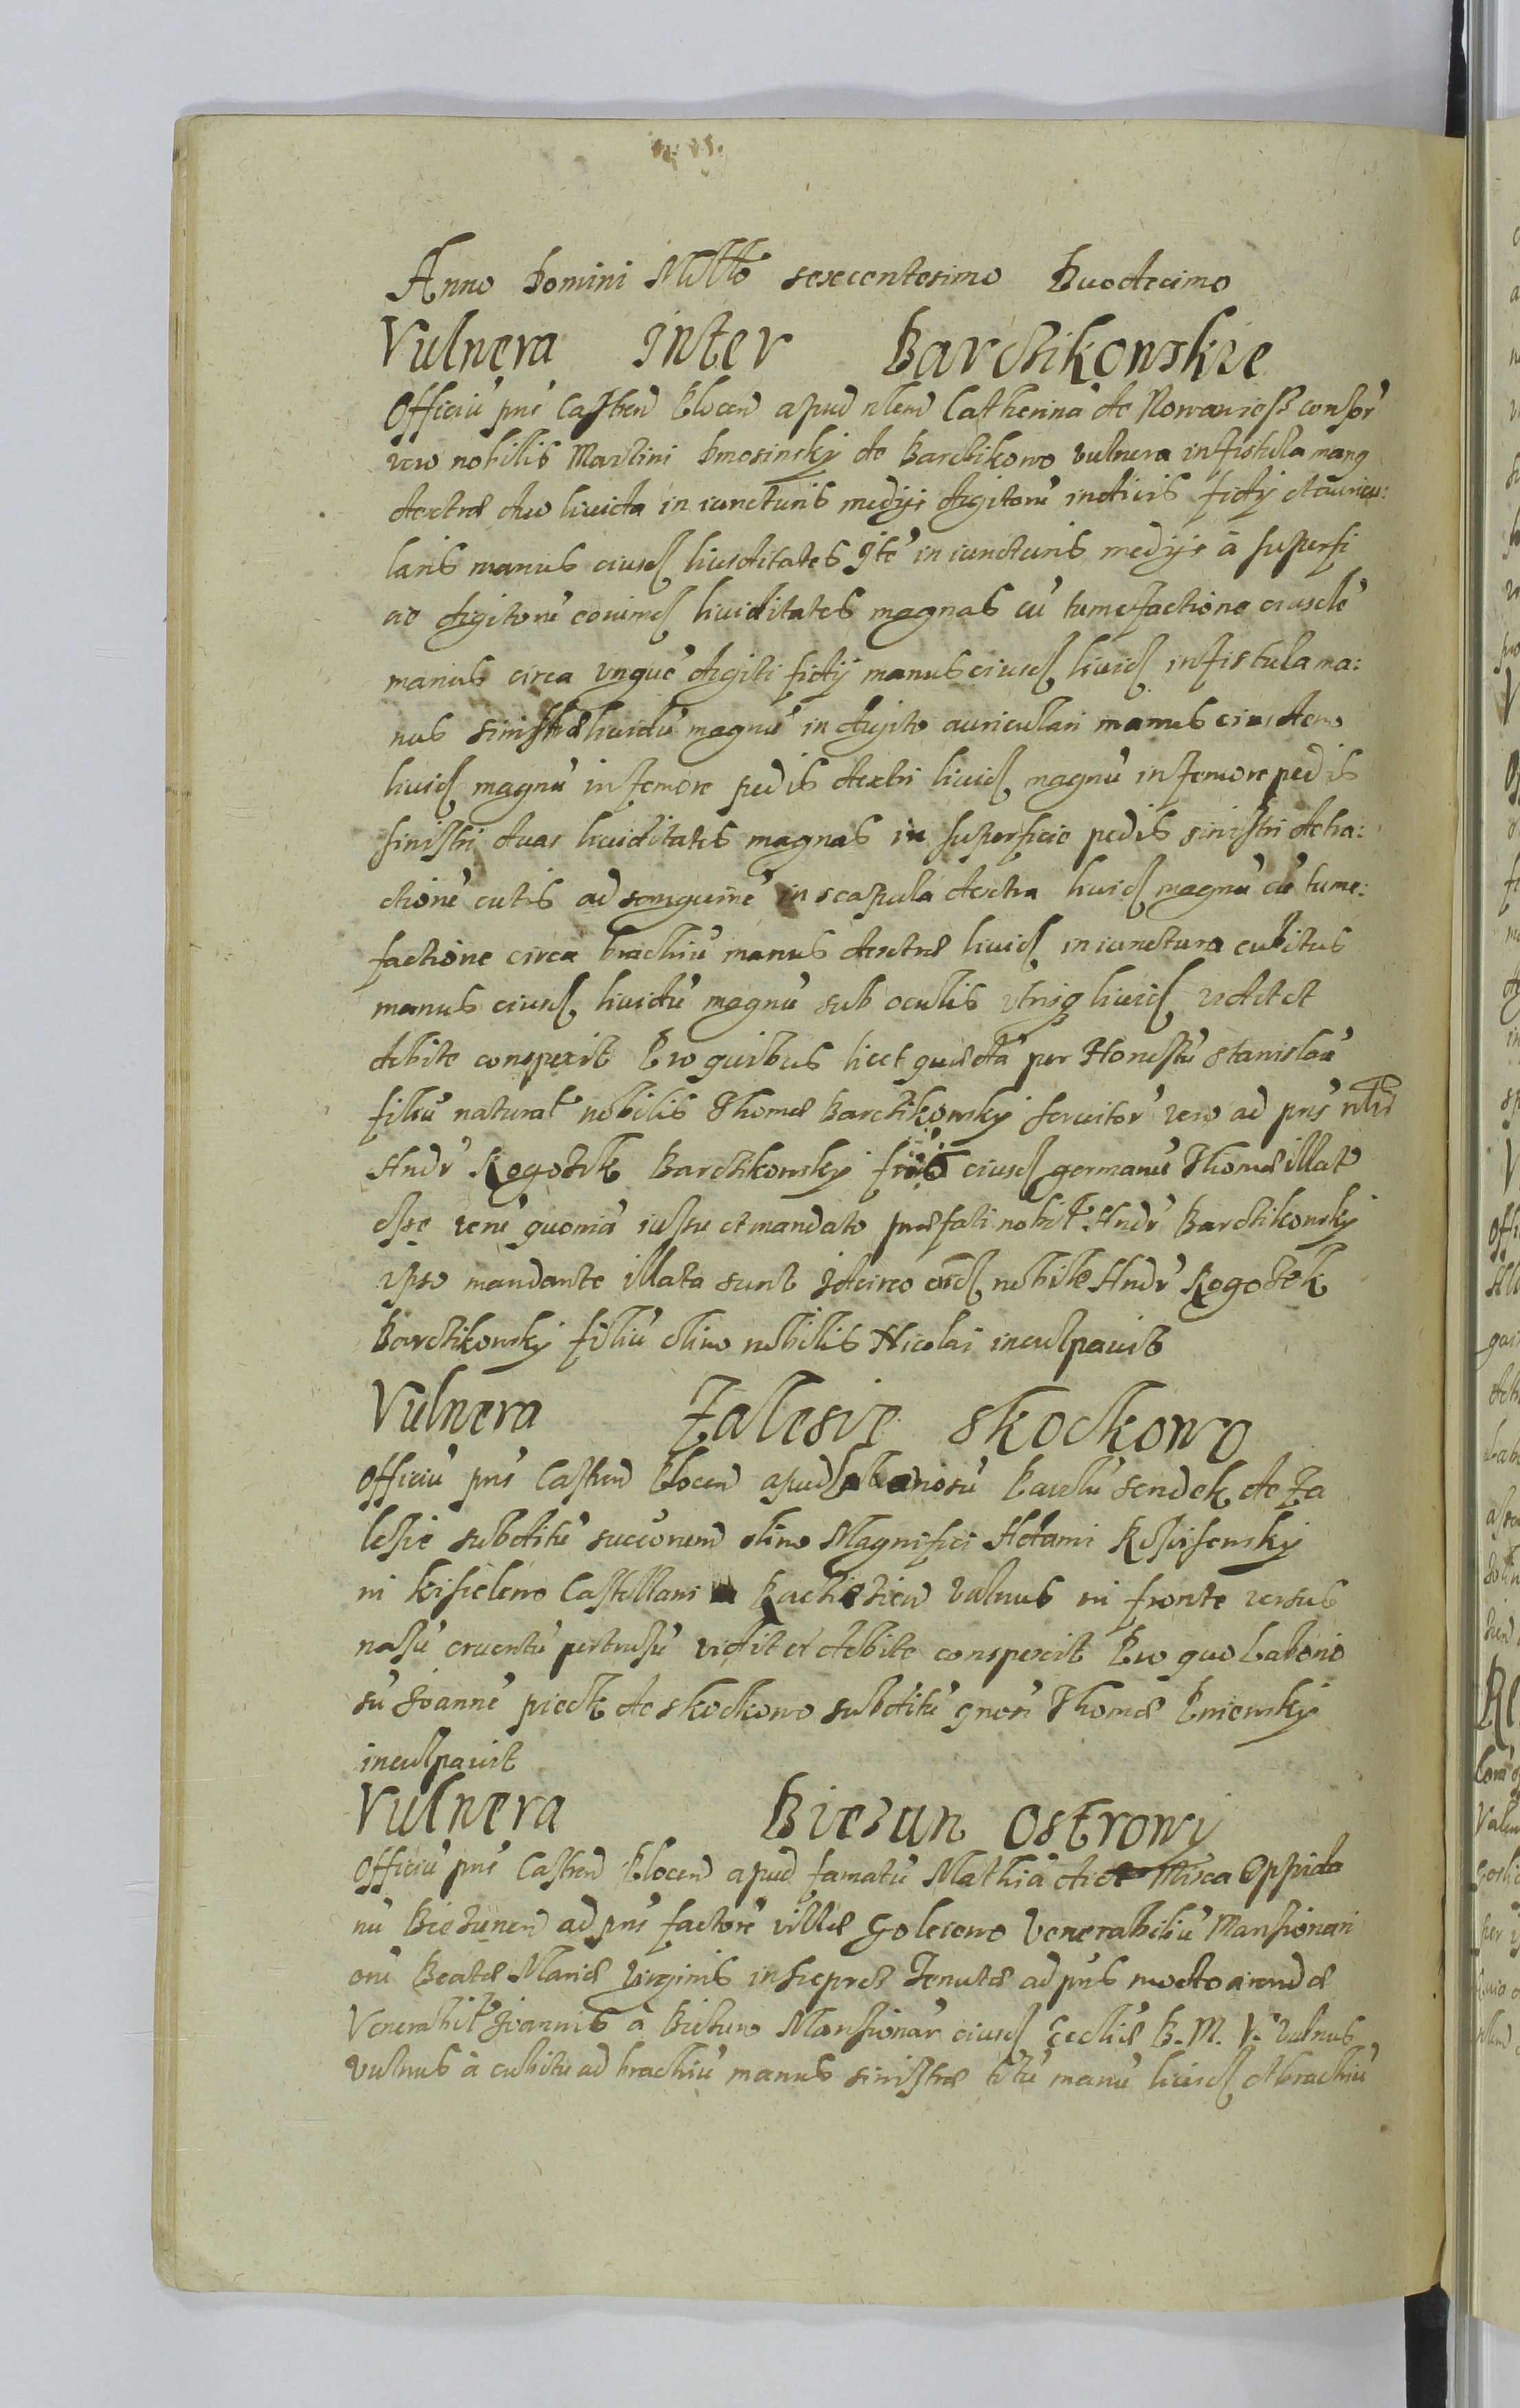 Anno Domini Mill̃o sexcentesimo Duodecimo
Vulnera inter Barcikowskie
Officiũ pñs Castreñ Plocen̄ apud nlem̄ Catherinã de Nowawiess consor
vero nobilis Martini Dmosinsky de Barcikowo vulnera in fistula mang
dextræ duo livida in iuncturis medijs digitorũ indicis fidij et auricu:
laris manus eiusd liuiditates Itẽ in iuncturis medijs à superfi
cie digitorũ eorund liuiditates magnas cũ tumefactione eiusdẽ
manus circa unguẽ digiti fidij manus eiusd liuid in fistula ma:
nus sinistræ liuidũ magnũ in digito auriculari manus eiusdem
liuid magnũ in femore pedis dextri liuid magnũ in femore pedis
sinistri duas liuiditates magnas in superficie pedis sinistri detra:
ctionẽ cutis ad sanguinẽ in scapula dextra liuid magnũ cũ tume:
factione circa brachiũ manus dextræ liuid in iunctura cubitus
manus eiusd liuidũ magnũ sub oculis utrisq liuid vidit et
debite conspexit Pro quibus licet quædã per Honestũ Stanislaũ
filiũ natural nobilis Thomæ Barcikowsky servitor vero ad pñs nlis
Andr Rogozik Barcikowsky eiusd germanũ Thomæ illat
esse verũ quoniã iussu et mandato præfati nobil Andr Barcikowsky
ipso mandante illata sunt Idcirco eund nobile Andr Rogozek
Barcikowsky filiũ olim nobilis Nicolai inculpavit
Vulnera Zalesie Skockowo
Officiũ pñs Castren Plocen apud Laboriosũ Pawlũ Sendek de Za
lesie subditũ succorum olim Magnifici Adami Kossisewsky
in Kisielewo Castellani Raciązien vulnus in fronte versus
nasũ cruentũ pertusũ vidit et debite conspexit Pro quo Laborio
sũ Joannẽ pieck de Skockowo subditũ gnosi Thomæ Pniewsky
inculpavit
Vulnera Biezun Ostrowy
Officiũ pñs Castren Plocen apud famatũ Mathiã dict Misca Oppida
nũ Biezunen ad pñs factorẽ villæ Goleszewo Venerabiliũ Mansionari
orũ Beatæ Mariæ Virginis in Sieprcz Tenutæ ad pñs modo arendæ
Venerabil Joannis à Biezun Mansionar eiusd Eccliæ B. M. V. vulnus
vulnus à cubitu ad brachiũ manus sinistræ totũ manũ liuid et brachiũ